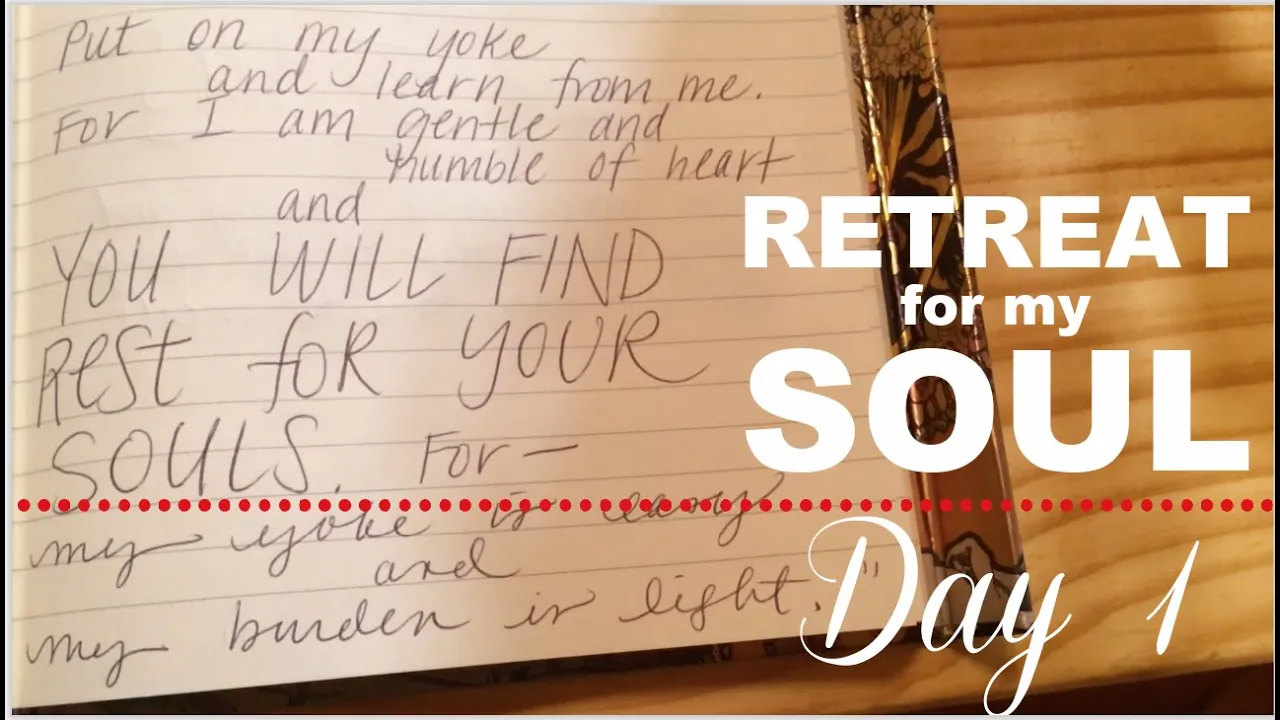 Put on my yoke
and learn from me.
For I am gentle and
humble of heart
and
YOU WILL FIND
Rest foR YOUR
SOULS. For —
my yoke is easy
and
my burden is light."
RETREAT
for my
SOUL
Day 1